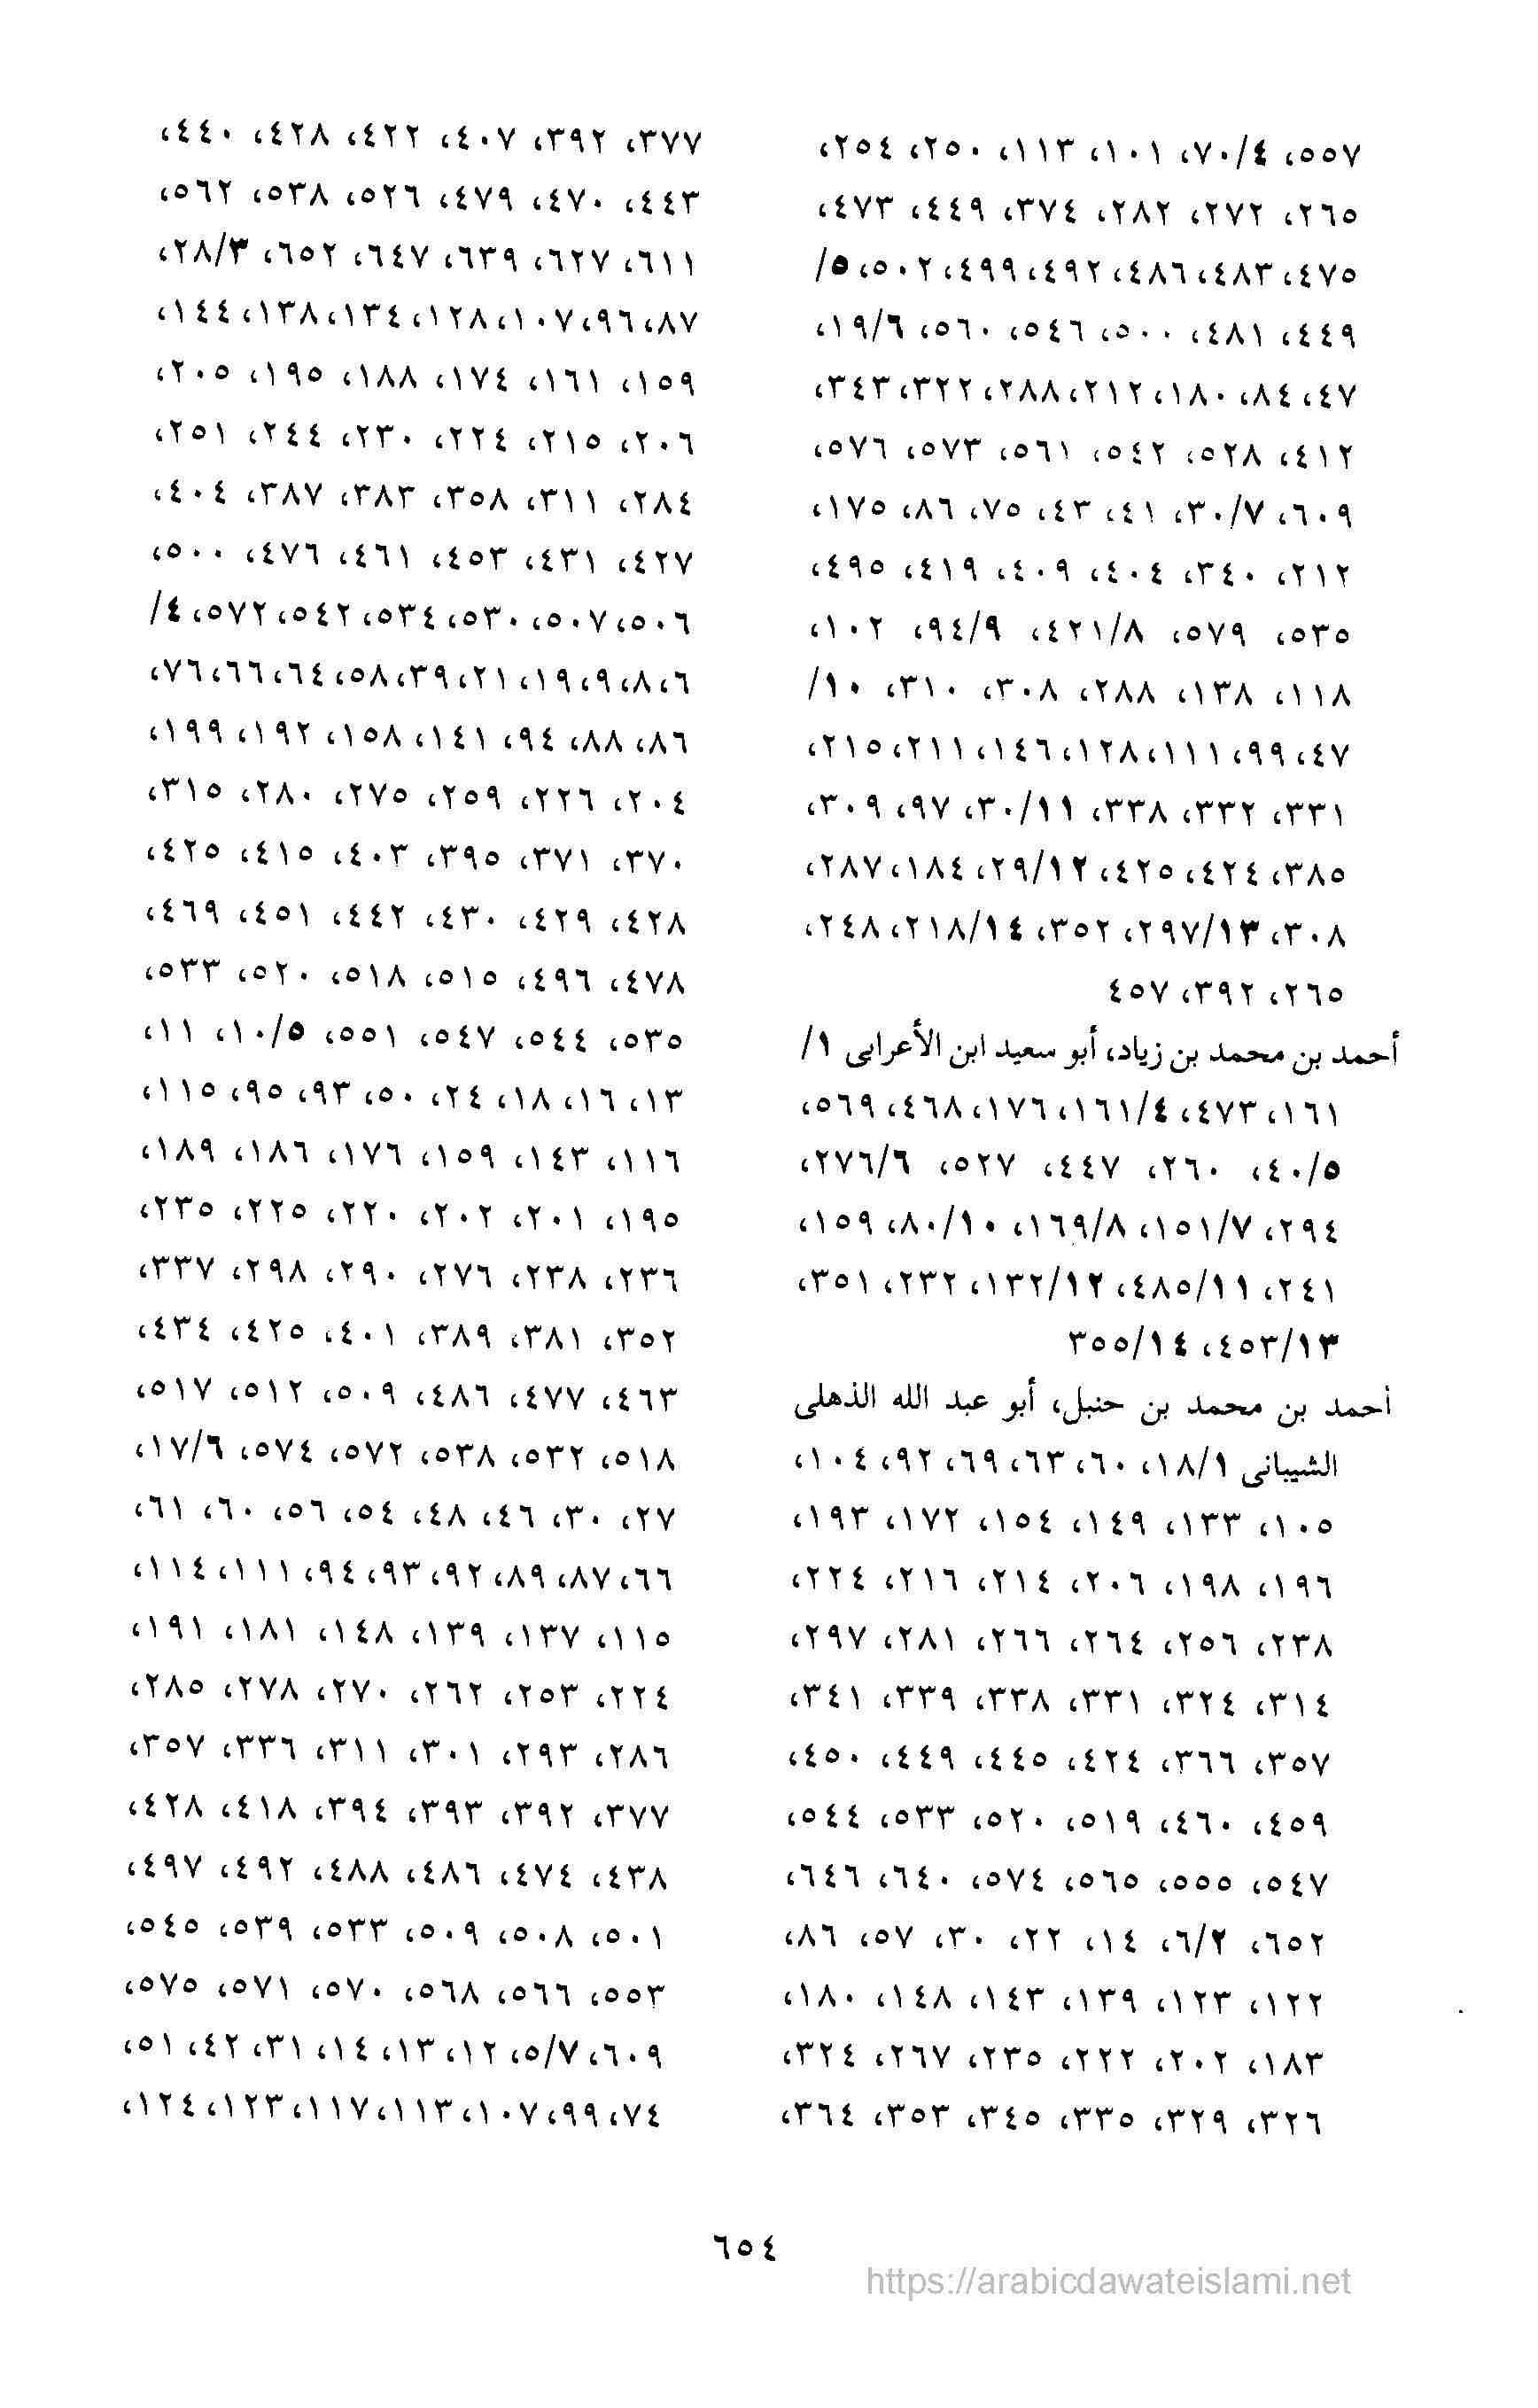 ٥٥٧، ٧٠/٤، ١٠١، ١١٣، ٢٥٠، ٢٥٤،
٢٦٥، ٢٧٢، ٢٨٢، ٣٧٤، ٤٤٩، ٤٧٣،
٤٧٥، ٤٨٣، ٤٨٦، ٤٩٢، ٤٩٩، ٥٠٢، ٥/
٤٤٩، ٤٨١، ٥٠٠، ٥٤٦، ٥٦٠، ١٩/٦،
٤٧، ٨٤، ١٨٠، ٢١٢، ٢٨٨، ٣٢٢، ٣٤٣،
٤١٢، ٥٢٨، ٥٤٢، ٥٦١، ٥٧٣، ٥٧٦،
٦٠٩، ٣٠/٧، ٤١، ٤٣، ٧٥، ٨٦، ١٧٥،
٢١٢، ٣٤٠، ٤٠٤، ٤٠٩، ٤١٩، ٤٩٥،
٥٣٥، ٥٧٩، ٤٢١/٨، ٩٤/٩، ١٠٢،
١١٨، ١٣٨، ٢٨٨، ٣٠٨، ٣١٠، ١٠/
٤٧، ٩٩، ١١١، ١٢٨، ١٤٦، ٢١١، ٢١٥،
٣٣١، ٣٣٢، ٣٣٨، ٣٠/١١، ٩٧، ٣٠٩،
٣٨٥، ٤٢٤، ٤٢٥، ٢٩/١٢، ١٨٤، ٢٨٧،
٣٠٨، ٢٩٧/١٣، ٣٥٢، ٢١٨/١٤، ٢٤٨،
٢٦٥، ٣٩٢، ٤٥٧
أحمد بن محمد بن زياد، أبو سعيد ابن الأعرابى ١/
١٦١، ٤٧٣، ١٦١/٤، ١٧٦، ٤٦٨، ٥٦٩،
٤٠/٥، ٢٦٠، ٤٤٧، ٥٢٧، ٢٧٦/٦،
٢٩٤، ١٥١/٧، ١٦٩/٨، ٨٠/١٠، ١٥٩،
٢٤١، ٤٨٥/١١، ١٣٢/١٢، ٢٣٢، ٣٥١،
٤٥٣/١٣، ٣٥٥/١٤
أحمد بن محمد بن حنبل، أبو عبد الله الذهلى
الشيبانى ١٨/١، ٦٠، ٦٣، ٦٩، ٩٢، ١٠٤،
١٠٥، ١٣٣، ١٤٩، ١٥٤، ١٧٢، ١٩٣،
١٩٦، ١٩٨، ٢٠٦، ٢١٤، ٢١٦، ٢٢٤،
٢٣٨، ٢٥٦، ٢٦٤، ٢٦٦، ٢٨١، ٢٩٧،
٣١٤، ٣٢٤، ٣٣١، ٣٣٨، ٣٣٩، ٣٤١،
٣٥٧، ٣٦٦، ٤٢٤، ٤٤٥، ٤٤٩، ٤٥٠،
٤٥٩، ٤٦٠، ٥١٩، ٥٢٠، ٥٣٣، ٥٤٤،
٥٤٧، ٥٥٥، ٥٦٥، ٥٧٤، ٦٤٠، ٦٤٦،
٦٥٢، ٦/٢، ١٤، ٢٢، ٣٠، ٥٧، ٨٦،
١٢٢، ١٢٣، ١٣٩، ١٤٣، ١٤٨، ١٨٠،
١٨٣، ٢٠٢، ٢٢٢، ٢٣٥، ٢٦٧، ٣٢٤،
٣٢٦، ٣٢٩، ٣٣٥، ٣٤٥، ٣٥٣، ٣٦٤،
٣٧٧، ٣٩٢، ٤٠٧، ٤٢٢، ٤٢٨، ٤٤٠،
٤٤٣، ٤٧٠، ٤٧٩، ٥٢٦، ٥٣٨، ٥٦٢،
٦١١، ٦٢٧، ٦٣٩، ٦٤٧، ٦٥٢، ٢٨/٣،
٨٧، ٩٦، ١٠٧، ١٢٨، ١٣٤، ١٣٨، ١٤٤،
١٥٩، ١٦١، ١٧٤، ١٨٨، ١٩٥، ٢٠٥،
٢٠٦، ٢١٥، ٢٢٤، ٢٣٠، ٢٤٤، ٢٥١،
٢٨٤، ٣١١، ٣٥٨، ٣٨٣، ٣٨٧، ٤٠٤،
٤٢٧، ٤٣١، ٤٥٣، ٤٦١، ٤٧٦، ٥٠٠،
٥٠٦، ٥٠٧، ٥٣٠، ٥٣٤، ٥٤٢، ٥٧٢، ٤/
٦، ٨، ٩، ١٩، ٢١، ٣٩، ٥٨، ٦٤، ٦٦، ٧٦،
٨٦، ٨٨، ٩٤، ١٤١، ١٥٨، ١٩٢، ١٩٩،
٢٠٤، ٢٢٦، ٢٥٩، ٢٧٥، ٢٨٠، ٣١٥،
٣٧٠، ٣٧١، ٣٩٥، ٤٠٣، ٤١٥، ٤٢٥،
٤٢٨، ٤٢٩، ٤٣٠، ٤٤٢، ٤٥١، ٤٦٩،
٤٧٨، ٤٩٦، ٥١٥، ٥١٨، ٥٢٠، ٥٣٣،
٥٣٥، ٥٤٤، ٥٤٧، ٥٥١، ١٠/٥، ١١،
١٣، ١٦، ١٨، ٢٤، ٥٠، ٩٣، ٩٥، ١١٥،
١١٦، ١٤٣، ١٥٩، ١٧٦، ١٨٦، ١٨٩،
١٩٥، ٢٠١، ٢٠٢، ٢٢٠، ٢٢٥، ٢٣٥،
٢٣٦، ٢٣٨، ٢٧٦، ٢٩٠، ٢٩٨، ٣٣٧،
٣٥٢، ٣٨١، ٣٨٩، ٤٠١، ٤٢٥، ٤٣٤،
٤٦٣، ٤٧٧، ٤٨٦، ٥٠٩، ٥١٢، ٥١٧،
٥١٨، ٥٣٢، ٥٣٨، ٥٧٢، ٥٧٤، ١٧/٦،
٢٧، ٣٠، ٤٦، ٤٨، ٥٤، ٥٦، ٦٠، ٦١،
٦٦، ٨٧، ٨٩، ٩٢، ٩٣، ٩٤، ١١١، ١١٤،
١١٥، ١٣٧، ١٣٩، ١٤٨، ١٨١، ١٩١،
٢٢٤، ٢٥٣، ٢٦٢، ٢٧٠، ٢٧٨، ٢٨٥،
٢٨٦، ٢٩٣، ٣٠١، ٣١١، ٣٣٦، ٣٥٧،
٣٧٧، ٣٩٢، ٣٩٣، ٣٩٤، ٤١٨، ٤٢٨،
٤٣٨، ٤٧٤، ٤٨٦، ٤٨٨، ٤٩٢، ٤٩٧،
٥٠١، ٥٠٨، ٥٠٩، ٥٣٣، ٥٣٩، ٥٤٥،
٥٥٣، ٥٦٦، ٥٦٨، ٥٧٠، ٥٧١، ٥٧٥،
٦٠٩، ٥/٧، ١٢، ١٣، ١٤، ٣١، ٤٢، ٥١،
٧٤، ٩٩، ١٠٧، ١١٣، ١١٧، ١٢٣، ١٢٤،
٦٥٤
https://arabicdawateislami.net